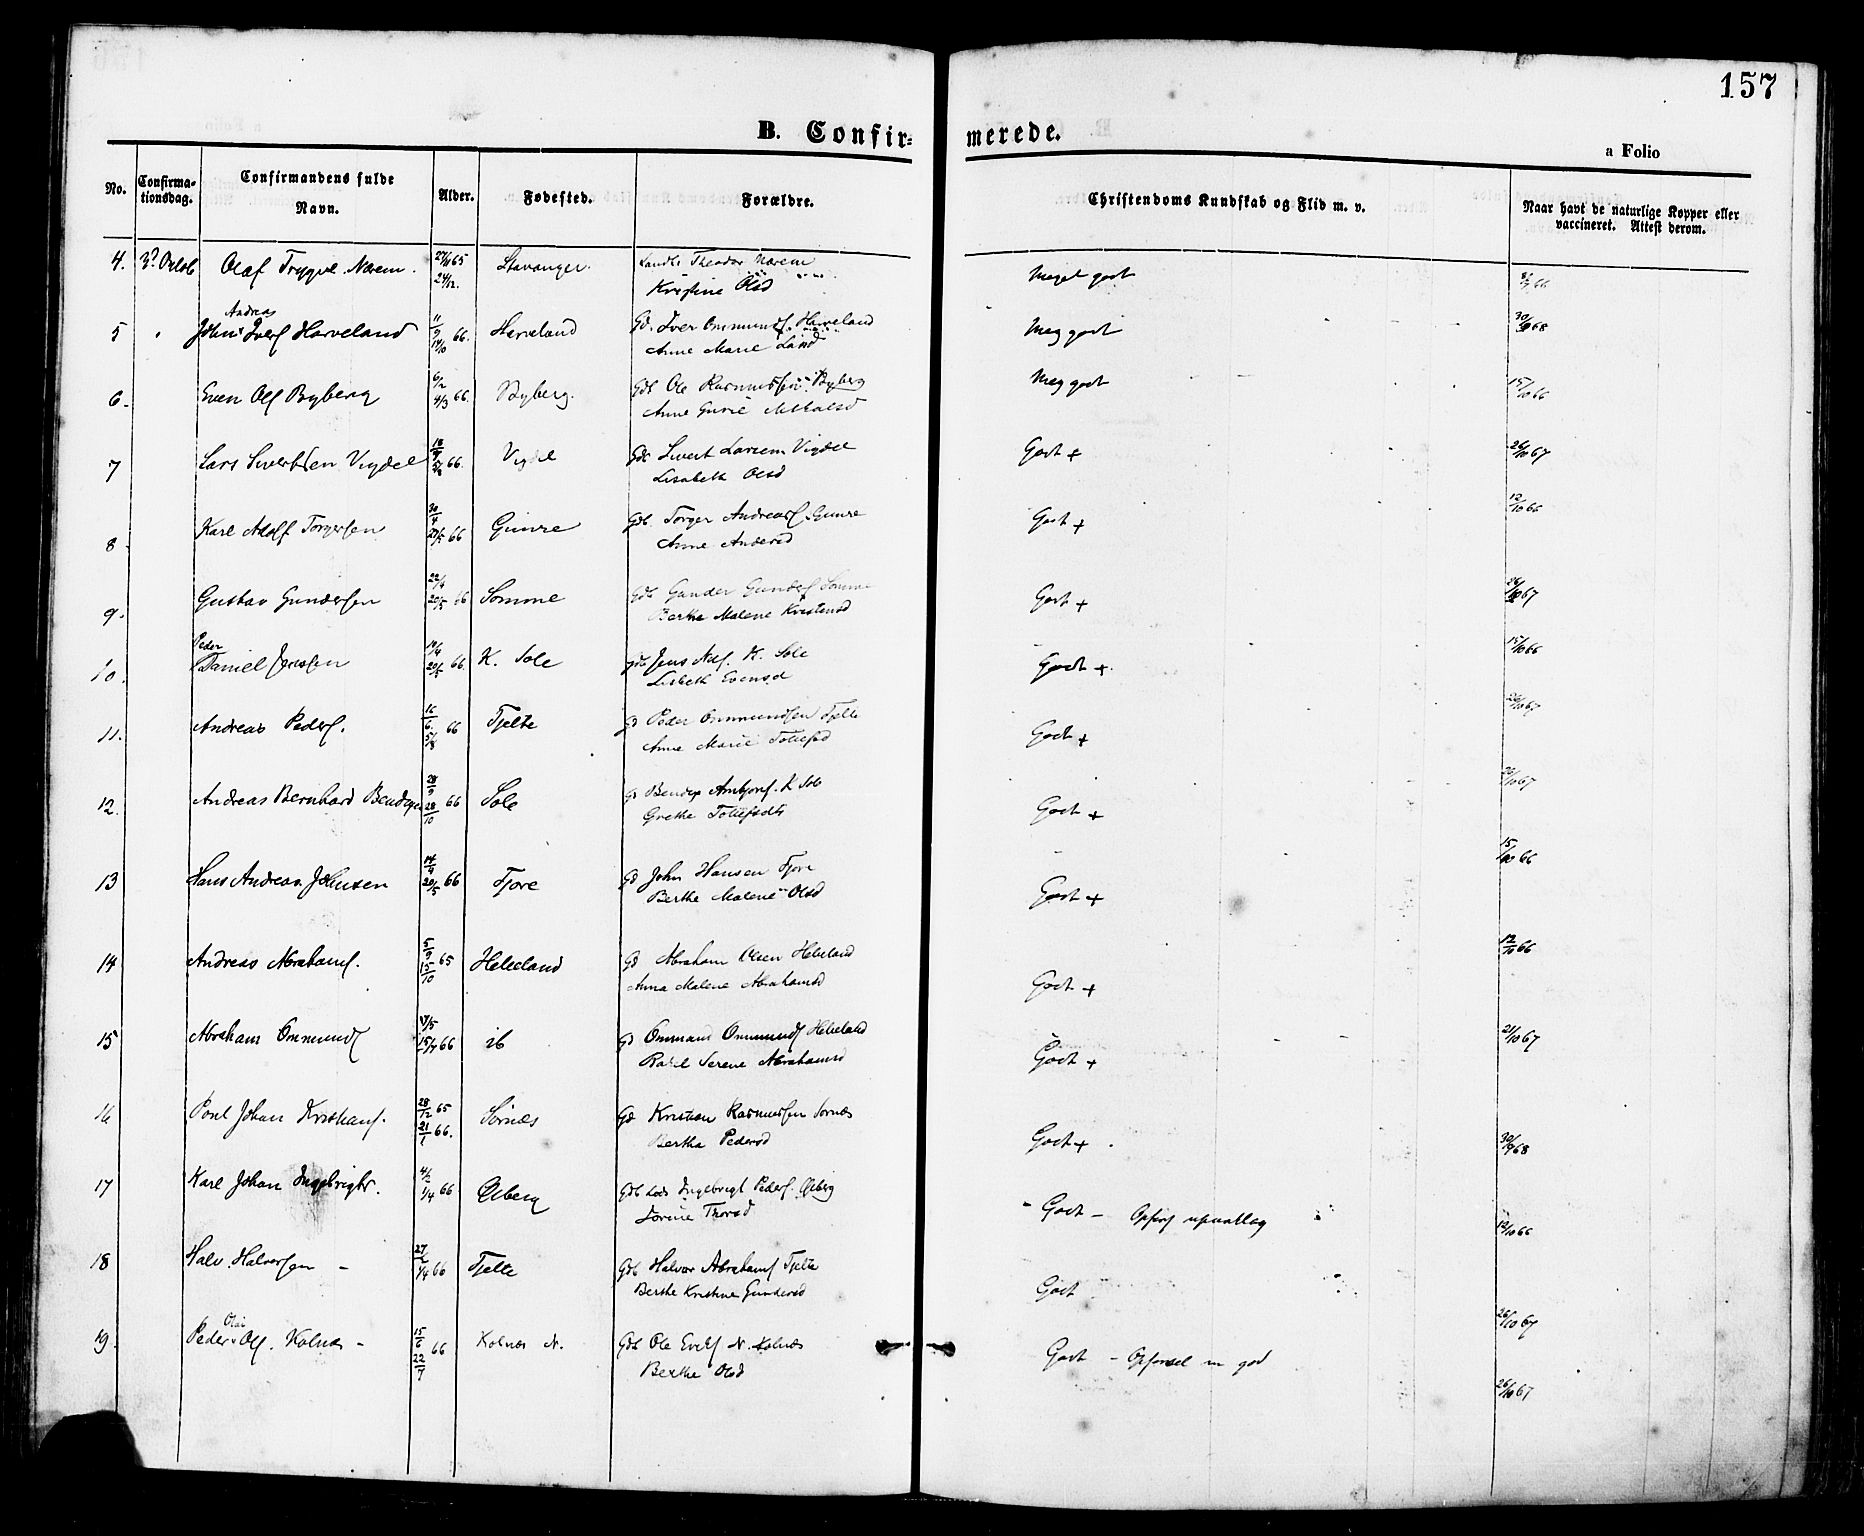 157
B. Confir-
merede.
a Folio
No.
Confirma-
tionsdag.
Confirmandens fulde
Navn.
Alder.
Fødested.
Forældre.
Christendoms Kundskab og Flid m. v.
Naar havt de naturlige Kopper eller
vaccineret. Attest derom.
4. Olaf Trygve Norem. 24/12. Stavanger. Theodor Norem
Kristine Olsd
Meget godt
Andreas
5 John Iverſ Harveland 11/9 14/10 66. Harveland Gd. Iver Ommundſ. Harveland
Anne Marie Larsd
Meg godt 68
6. Even Olſ Byberg 6/2 4/3 66. Byberg. Gdb Ole Rasmusſen Byberg
Anne Gurie
Meg godt 15/10 66
7 Lars Sivertsen Vigdel 66. Vigdel Gdb Sivert Larsen Vigdel
Lisabeth Olsd
Godt + 26/10 67
8. Karl Adolf Torgersen 66 Gimre Gdb. Torger Andreasſ. Gimre
Anne Andersd
Godt + 12/10 66
9. Gustav Gunderſen 22/4 20/5 66 Somme Gdb Gunder Gunderſ Somme
Berthe Malene Kristensd
Godt + 67
Peder
10. Daniel Jensſen 20/5 66 K. Sole Gdb Jens K. Sole
Lisbeth Evensd
Godt +. 15/10 66
11. Andreas Pederſ. 16/6 5/8 66 Tjelte Gd Peder Ommundſen Tjelte
Anne Marie Tollefsd
Godt + 26/10 67
12. Andreas Bernhard 28/9 28/10 66 Sole Gd K Sole
Grethe
Godt + 26/10 67
13 Hans Andreas Johnsen 14/4 20/5 66 Tjore Gd John Hansen Tjore
Berthe Malene Olsd
Godt + 15/10 66
14 Andreas Abrahamſ. 5/9 15/10 65 Helleland Gd Abraham Olsen Helleland
Anna Malene Abrahamsd
Godt + 12/10 66
15 Abraham Ommundſ 15/7 66 ib Gd Ommund Ommundſ Helleland
Serene Abrahamsd
Godt + 21/10 67
16 Poul Johan Kristianſ. 28/12 65 21/1 66. Sørnæs Gd Kristian Rasmusſen Sørnæs
Bertha Pedersd
Godt + 68
17 Karl Johan Ingebrigtſ. 1/4 66 Ølberg Gdb Ingebrigt Pederſ. Ølberg
Thorsd
Godt - 12/10 66
18 Halv. Halvorsen - 66 Tjelte Gdb Halvor Abrahamſ Tjelte
Berthe Kristine Gundersd
Godt 26/10 67
Olai
19. Peder Olſ. Kolnæs - 15/6 22/7 66 Kolnæs N. Gdb Ole N. Kolnæs
Berthe Olsd
Godt - Opførsel m god 26/10 67